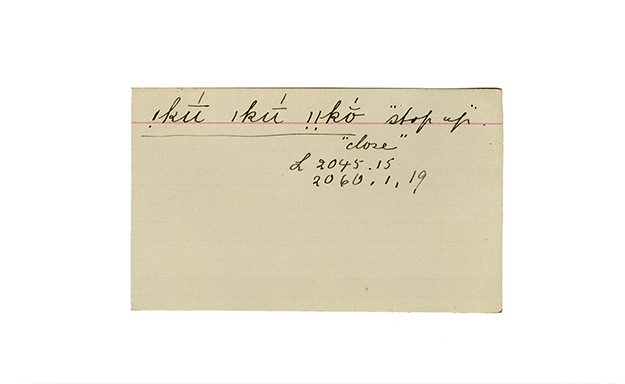 !kū́ ǀkū́ ǃǃkó̆ "stop up".
"close"
L 2045.15
2060.1,19